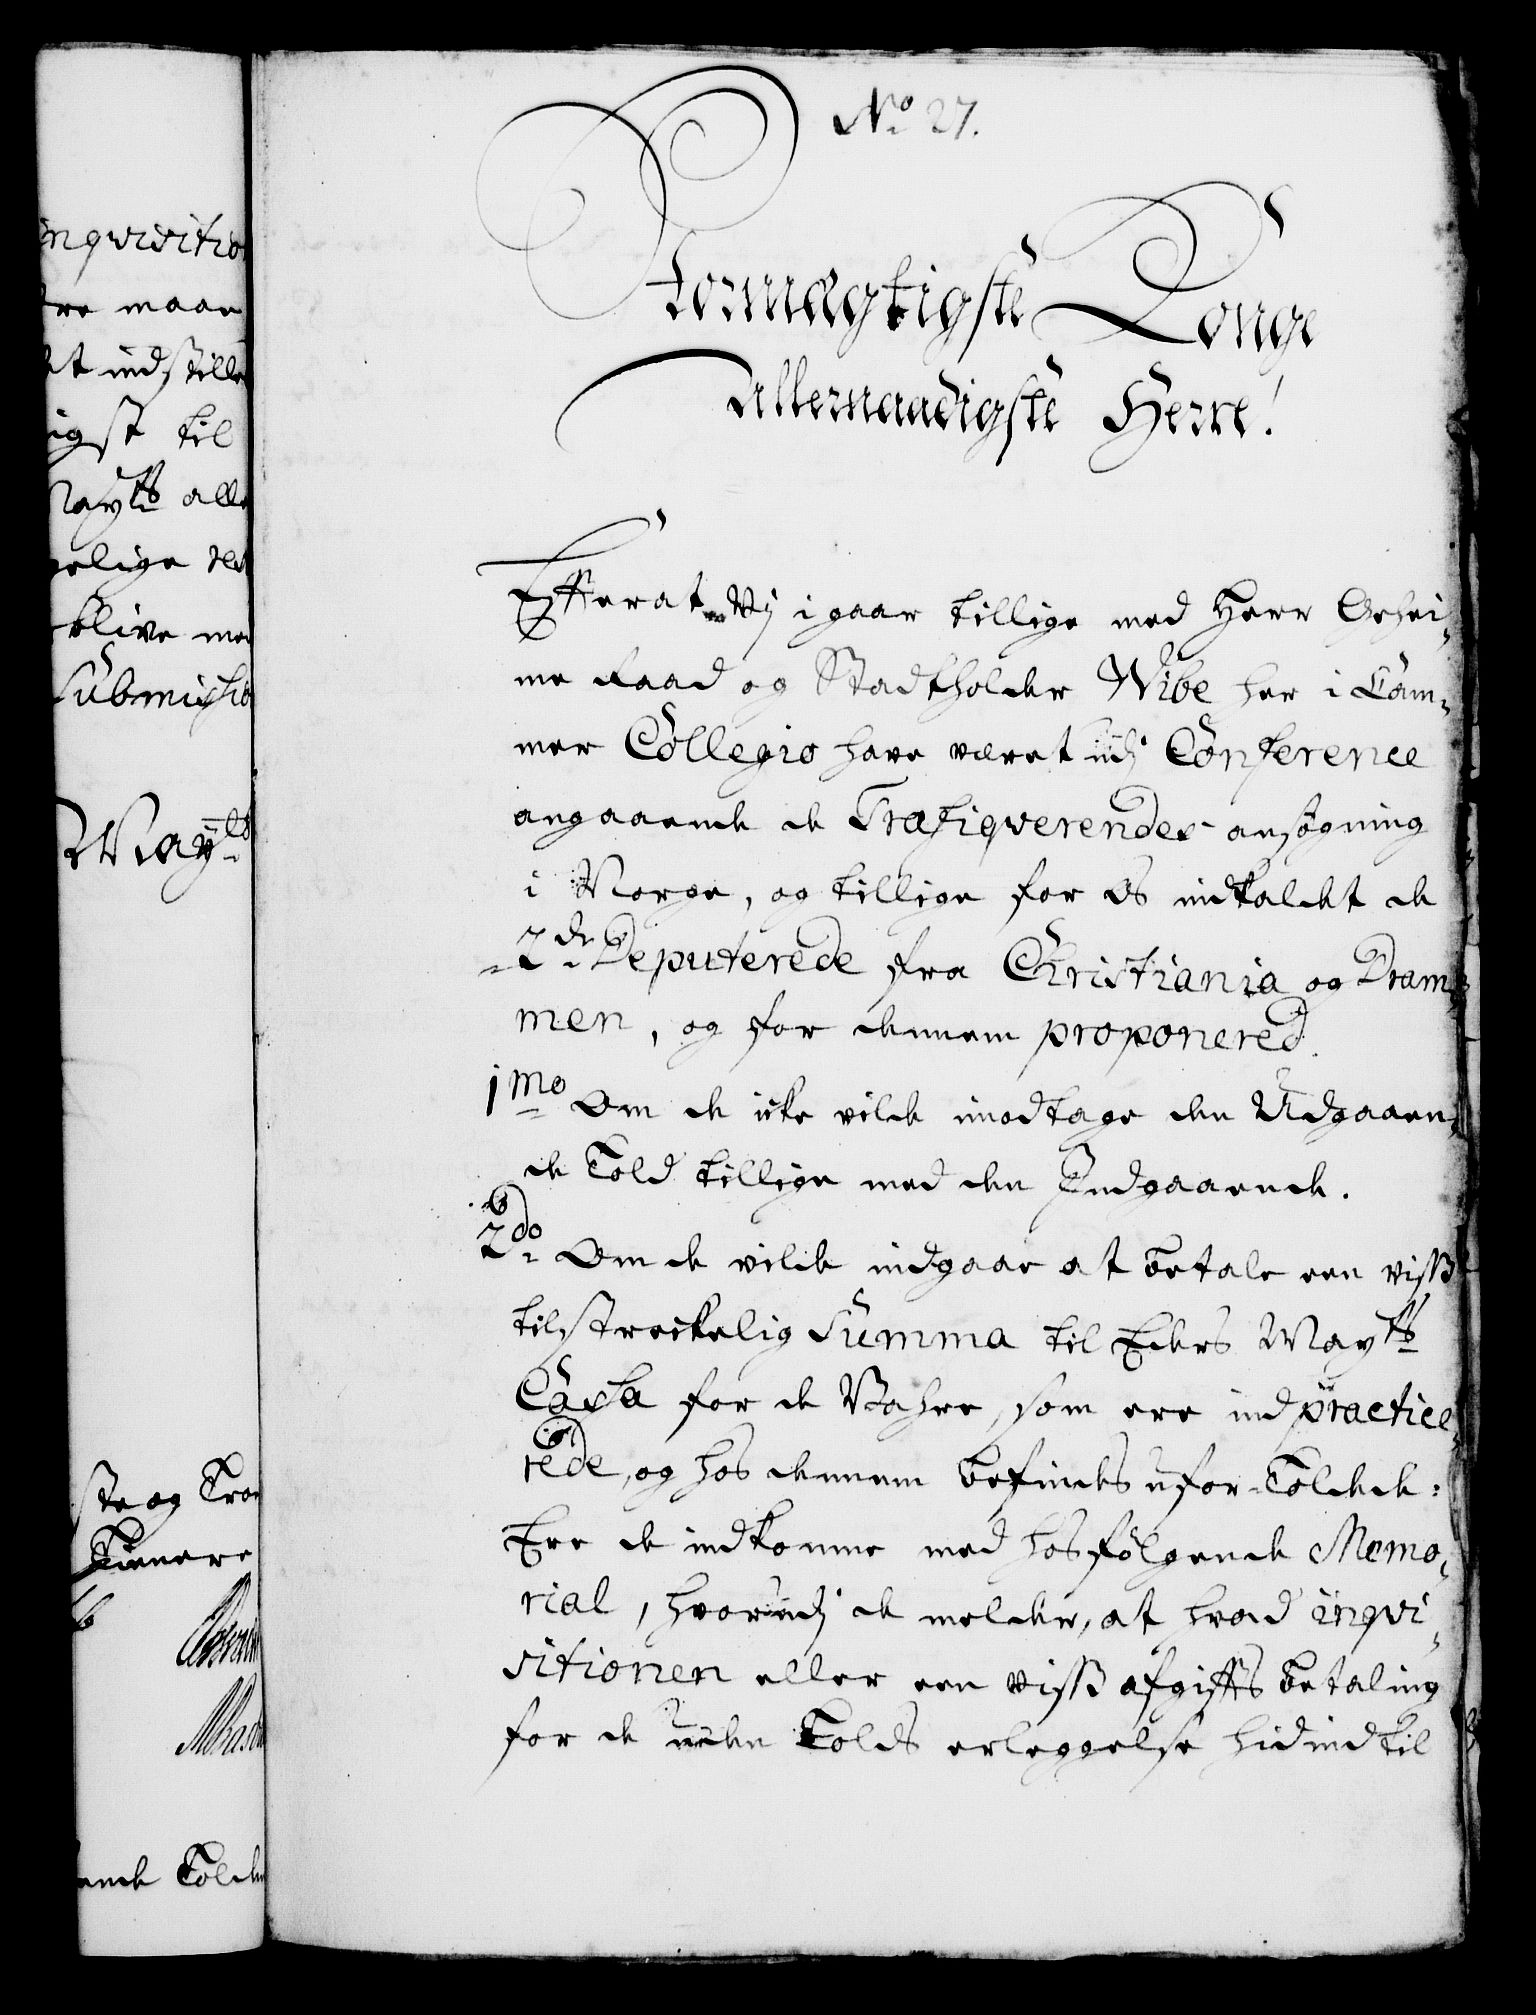 No 27.
Stormægtigste Konge
Allernaadigste Herre!
Efterat Vy i gaar tillige med Herr Gehei-
me Raad og Stadtholder Wibe her i Cam-
mer Collegio have været udj Conference
angaaende de Trafiqverendes ansøgning
i Norge, og tillige for Os indkaldet de
2de Deputerede fra Christiania og Dram-
men, og for dennem proponered.
1mo Om de icke vilde imodtage den Udgaaen-
de Told tillige med den Indgaaende.
2do Om de vilde indgaae at betale een viss
tilstreckelig Summa til Eders Mayts
Cassa for de Vahre, som ere indpractice-
rede, og hos dennem befindes ufor-Toldede:
Ere de indkomne med hosfølgende Memo-
rial, hvorudj de melder, at hvad inqvi-
sitionen eller een viss afgiffts betaling
for de uden Tolds erleggelse hidindtil
inqvisitio
re maae
et indstille
igst til
Mayts alle
elige
blive med
Submissio
Mayts
ste og Troe
Tienere
ende Tolden